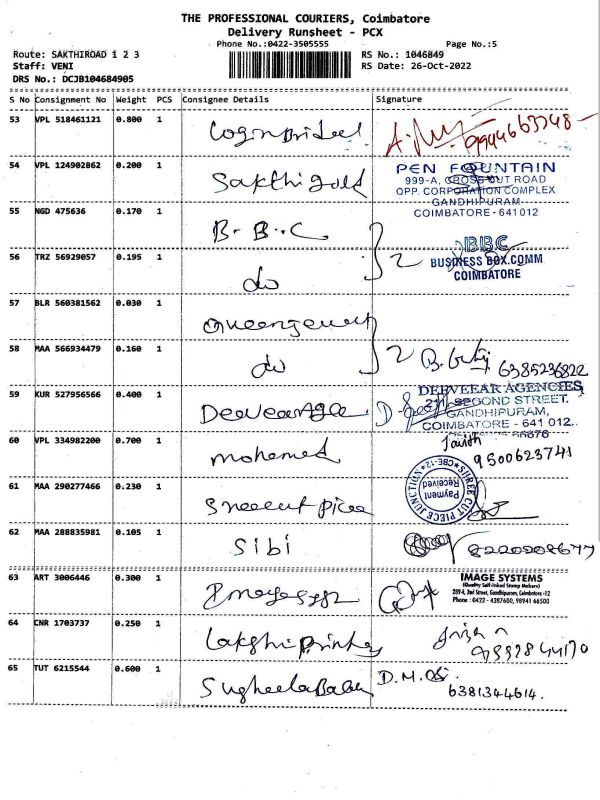 THE PROFESSIONAL COURIERS, Coimbatore
Delivery Runsheet - PCX
Phone No.:0422-3505555
Page No.:5
Route: SAKTHIROAD 1 2 3
RS No.: 1046849
Staff: VENI
RS Date: 26-Oct-2022
DRS No.: DCJB104684905
S No Consignment No Weight PCS Consignee Details Signature
53 VPL 518461121 0.800 1
54 VPL 124902862 0.200 1 Sakthi gold
PEN FOUNTAIN
999-A, CROSS CUT ROAD
OPP. CORPORATION COMPLEX
GANDHIPURAM
COIMBATORE - 641 012
55 NGD 475636 0.170 1 B.B.C
2
BBC
BUSINESS BOX.COMM
COIMBATORE
56 TRZ 56929057 0.195 1 do
57 BLR 560381562 0.030 1
58 MAA 566934479 0.160 1 do
2
6385236822
59 KUR 527956566 0.400 1
DEEVEEAR AGENCIES
SECOND STREET,
GANDHIPURAM,
COIMBATORE - 641 012..
60 VPL 334982200 0.700 1 mohamed
9500623741
61 MAA 290277466 0.230 1
SHREE CUT PIECE JUNCTION
*CBE-12*
Payment
Received
62 MAA 288835981 0.105 1 Sibi
63 ART 3006446 0.300 1
IMAGE SYSTEMS
(Quality Self-Inked Stamp Makers)
289-E, 2nd Street, Gandhipuram, Coimbatore -12
Phone : 0422 - 4387600, 98941 66500
64 CNR 1703737 0.250 1
65 TUT 6215544 0.600 1
6381344614.